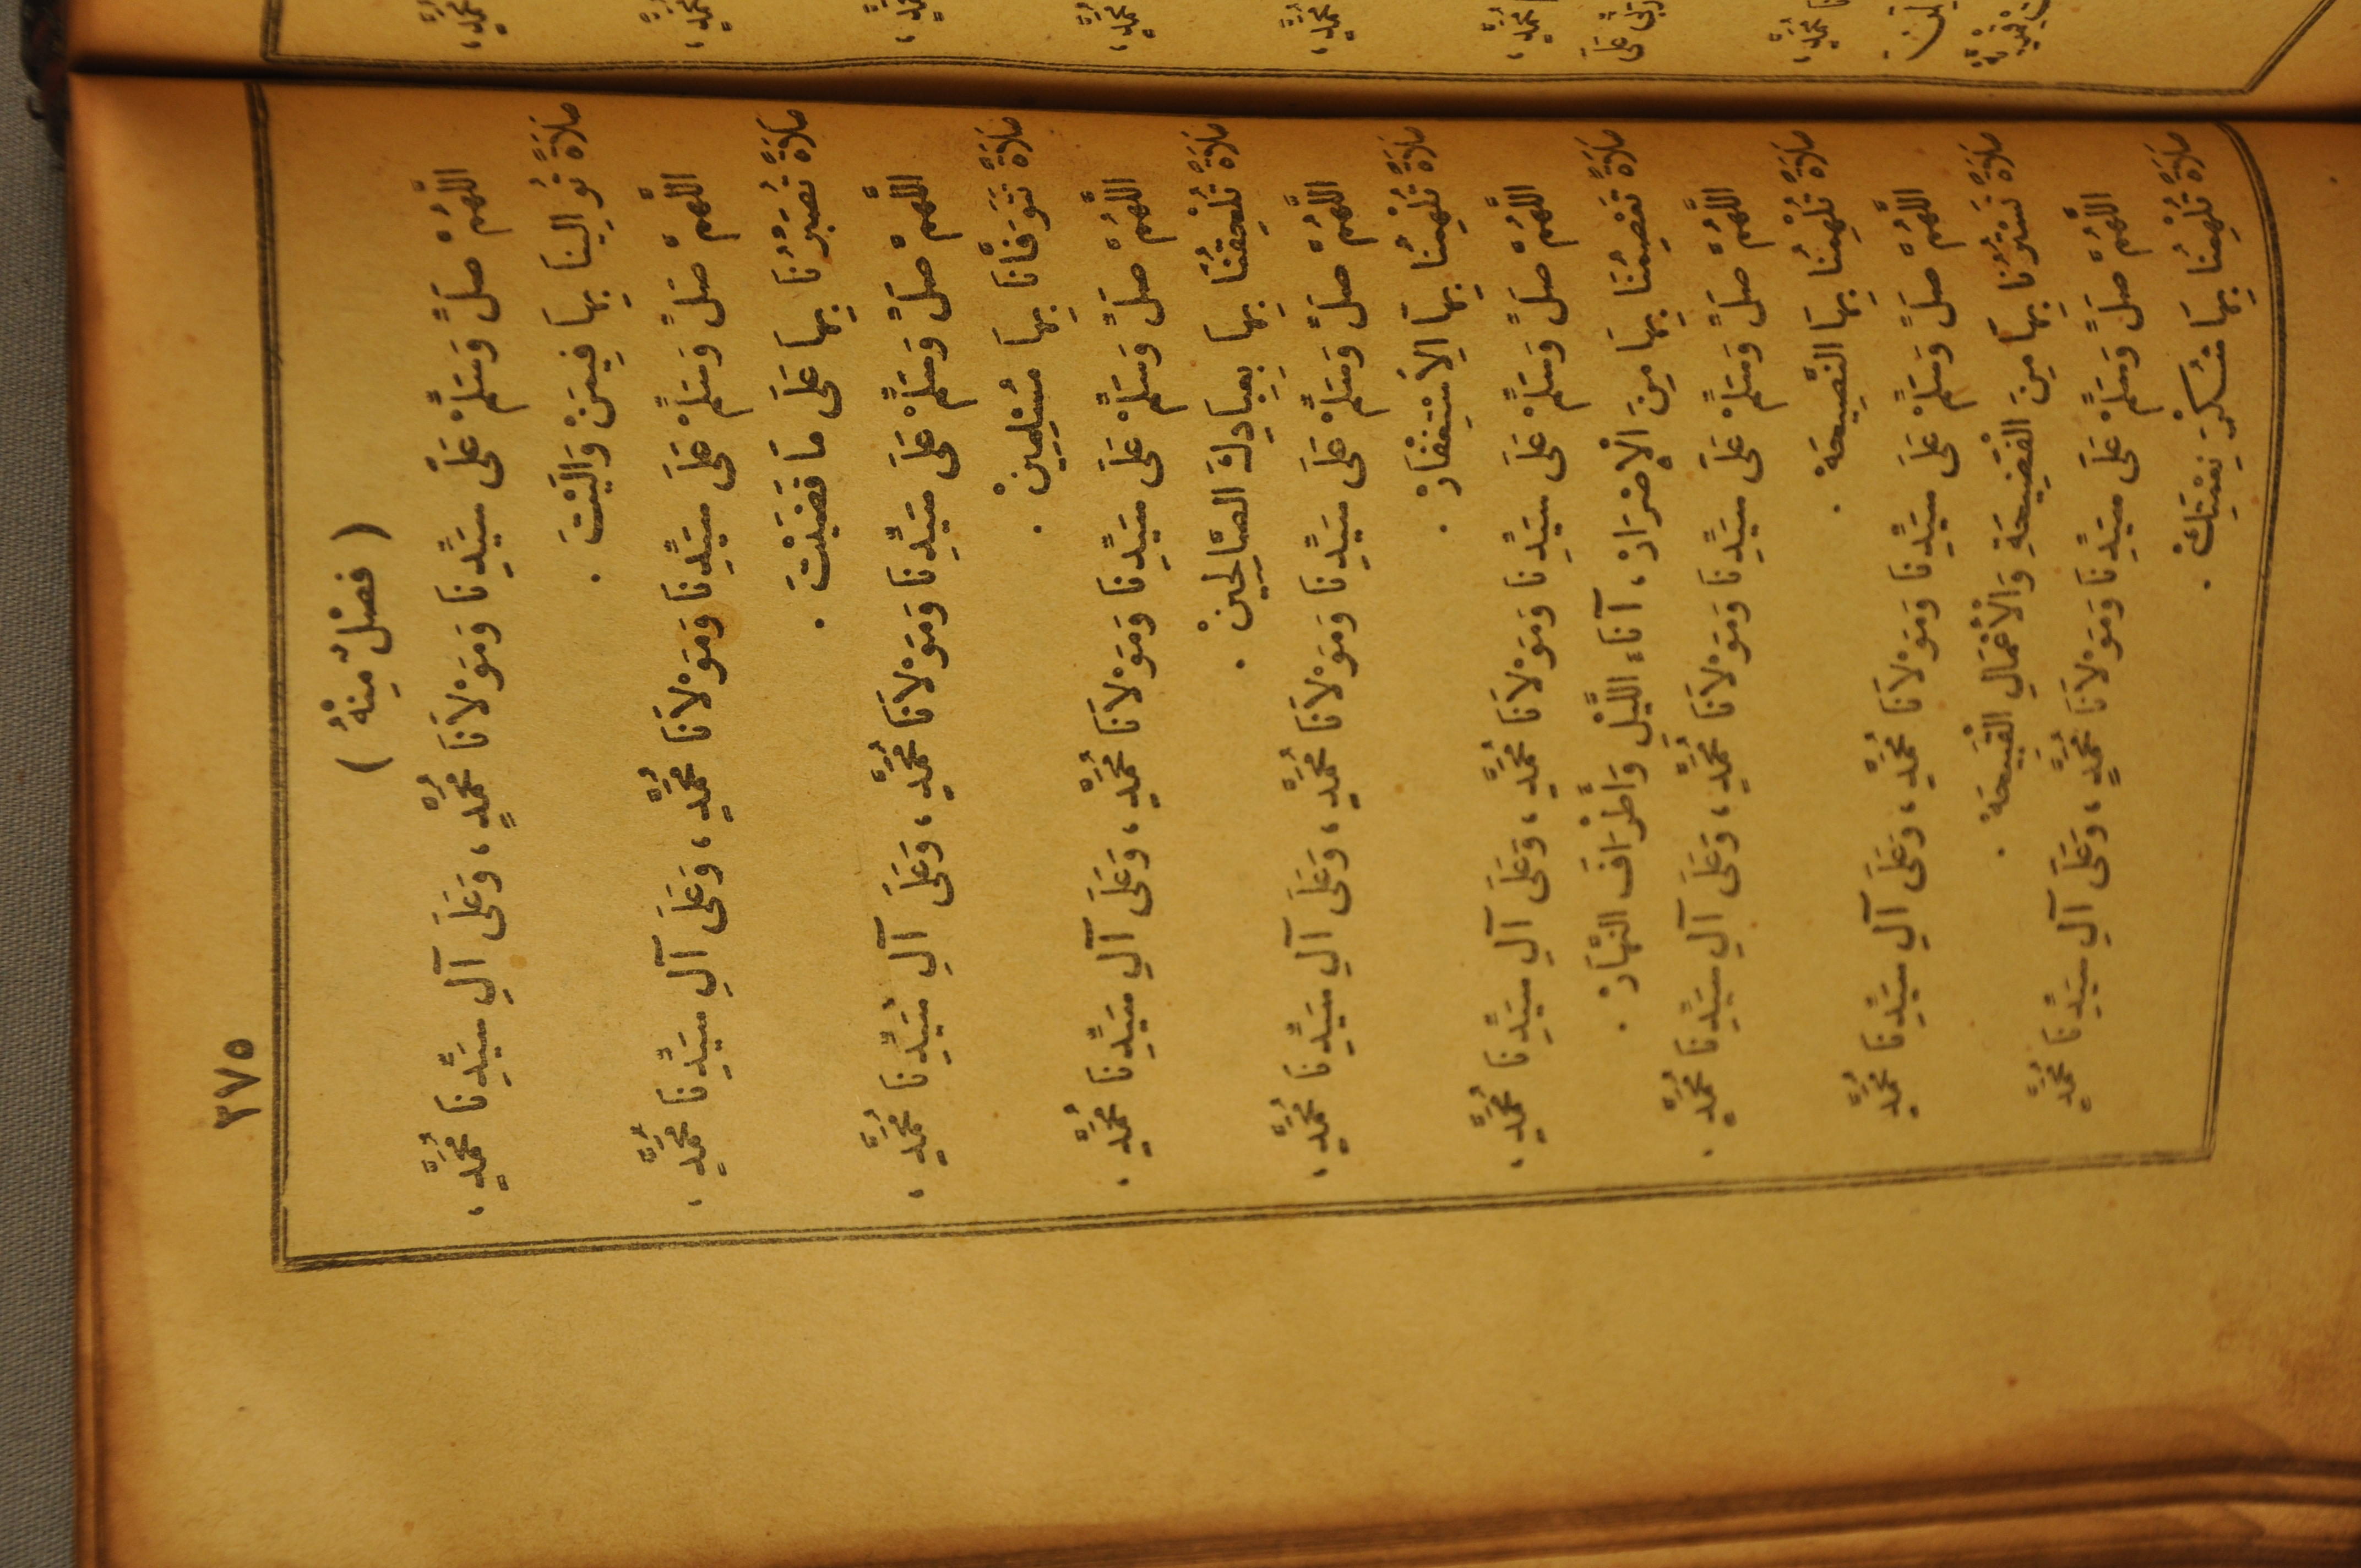 ٣٧٥
( فَصْلٌ مِنْهُ )
اَللَّهُمَّ صَلِّ وَسَلِّمْ عَلَى سَيِّدِنَا وَمَوْلَانَا مُحَمَّدٍ، وَعَلَى آلِ سَيِّدِنَا مُحَمَّدٍ،
صَلَاةً تُوَالِينَا بِهَا فِيمَنْ وَالَيْتَ .
اَللَّهُمَّ صَلِّ وَسَلِّمْ عَلَى سَيِّدِنَا وَمَوْلَانَا مُحَمَّدٍ، وَعَلَى آلِ سَيِّدِنَا مُحَمَّدٍ،
صَلَاةً تُصَبِّرُنَا بِهَا عَلَى مَا قَضَيْتَ .
اَللَّهُمَّ صَلِّ وَسَلِّمْ عَلَى سَيِّدِنَا وَمَوْلَانَا مُحَمَّدٍ، وَعَلَى آلِ سَيِّدِنَا مُحَمَّدٍ،
صَلَاةً تَتَوَفَّانَا بِهَا مُسْلِمِينْ .
اَللَّهُمَّ صَلِّ وَسَلِّمْ عَلَى سَيِّدِنَا وَمَوْلَانَا مُحَمَّدٍ، وَعَلَى آلِ سَيِّدِنَا مُحَمَّدٍ،
صَلَاةً تُلْحِقُنَا بِهَا بِعِبَادِكَ الصَّالِحِينْ .
اَللَّهُمَّ صَلِّ وَسَلِّمْ عَلَى سَيِّدِنَا وَمَوْلَانَا مُحَمَّدٍ، وَعَلَى آلِ سَيِّدِنَا مُحَمَّدٍ،
صَلَاةً تُلْهِمُنَا بِهَا الِاسْتِغْفَارْ .
اَللَّهُمَّ صَلِّ وَسَلِّمْ عَلَى سَيِّدِنَا وَمَوْلَانَا مُحَمَّدٍ، وَعَلَى آلِ سَيِّدِنَا مُحَمَّدٍ،
صَلَاةً تَعْصِمُنَا بِهَا مِنَ الْإِصْرَارْ، آنَاءَ اللَّيْلِ وَأَطْرَافَ النَّهَارْ .
اَللَّهُمَّ صَلِّ وَسَلِّمْ عَلَى سَيِّدِنَا وَمَوْلَانَا مُحَمَّدٍ، وَعَلَى آلِ سَيِّدِنَا مُحَمَّدٍ،
صَلَاةً تُلْهِمُنَا بِهَا النَّصِيحَهْ .
اَللَّهُمَّ صَلِّ وَسَلِّمْ عَلَى سَيِّدِنَا وَمَوْلَانَا مُحَمَّدٍ، وَعَلَى آلِ سَيِّدِنَا مُحَمَّدٍ
صَلَاةً تَسْتُرُنَا بِهَا مِنَ الْفَضِيحَةِ وَالْأَعْمَالِ الْقَبِيحَهْ .
اَللَّهُمَّ صَلِّ وَسَلِّمْ عَلَى سَيِّدِنَا وَمَوْلَانَا مُحَمَّدٍ، وَعَلَى آلِ سَيِّدِنَا مُحَمَّدٍ
صَلَاةً تُلْهِمُنَا بِهَا شُكْرَ نِعْمَتِكْ .